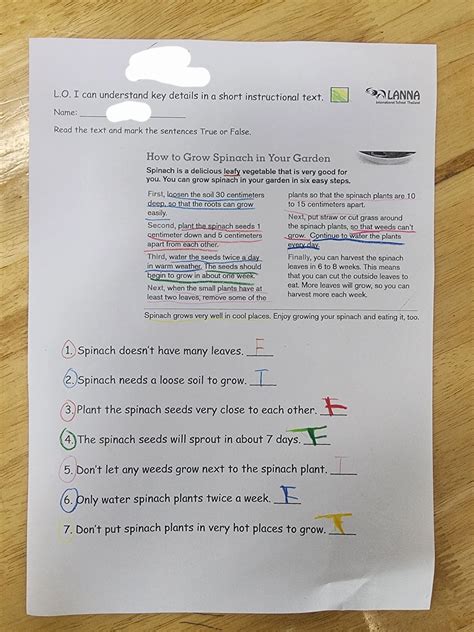 L.O. I can understand key details in a short instructional text.
LANNA
International School Thailand
Name:
Read the text and mark the sentences True or False.
How to Grow Spinach in Your Garden
Spinach is a delicious leafy vegetable that is very good for
you. You can grow spinach in your garden in six easy steps.
First, loosen the soil 30 centimeters
deep, so that the roots can grow
easily.
Second, plant the spinach seeds 1
centimeter down and 5 centimeters
apart from each other.
Third, water the seeds twice a day
in warm weather. The seeds should
begin to grow in about one week.
Next, when the small plants have at
least two leaves, remove some of the
plants so that the spinach plants are 10
to 15 centimeters apart.
Next, put straw or cut grass around
the spinach plants, so that weeds can't
grow. Continue to water the plants
every day.
Finally, you can harvest the spinach
leaves in 6 to 8 weeks. This means
that you can cut the outside leaves to
eat. More leaves will grow, so you can
harvest more each week.
Spinach grows very well in cool places. Enjoy growing your spinach and eating it, too.
1. Spinach doesn't have many leaves. F
2. Spinach needs a loose soil to grow. T
3. Plant the spinach seeds very close to each other. F
4. The spinach seeds will sprout in about 7 days.
5. Don't let any weeds grow next to the spinach plant. T
6. Only water spinach plants twice a week. F
7. Don't put spinach plants in very hot places to grow. T